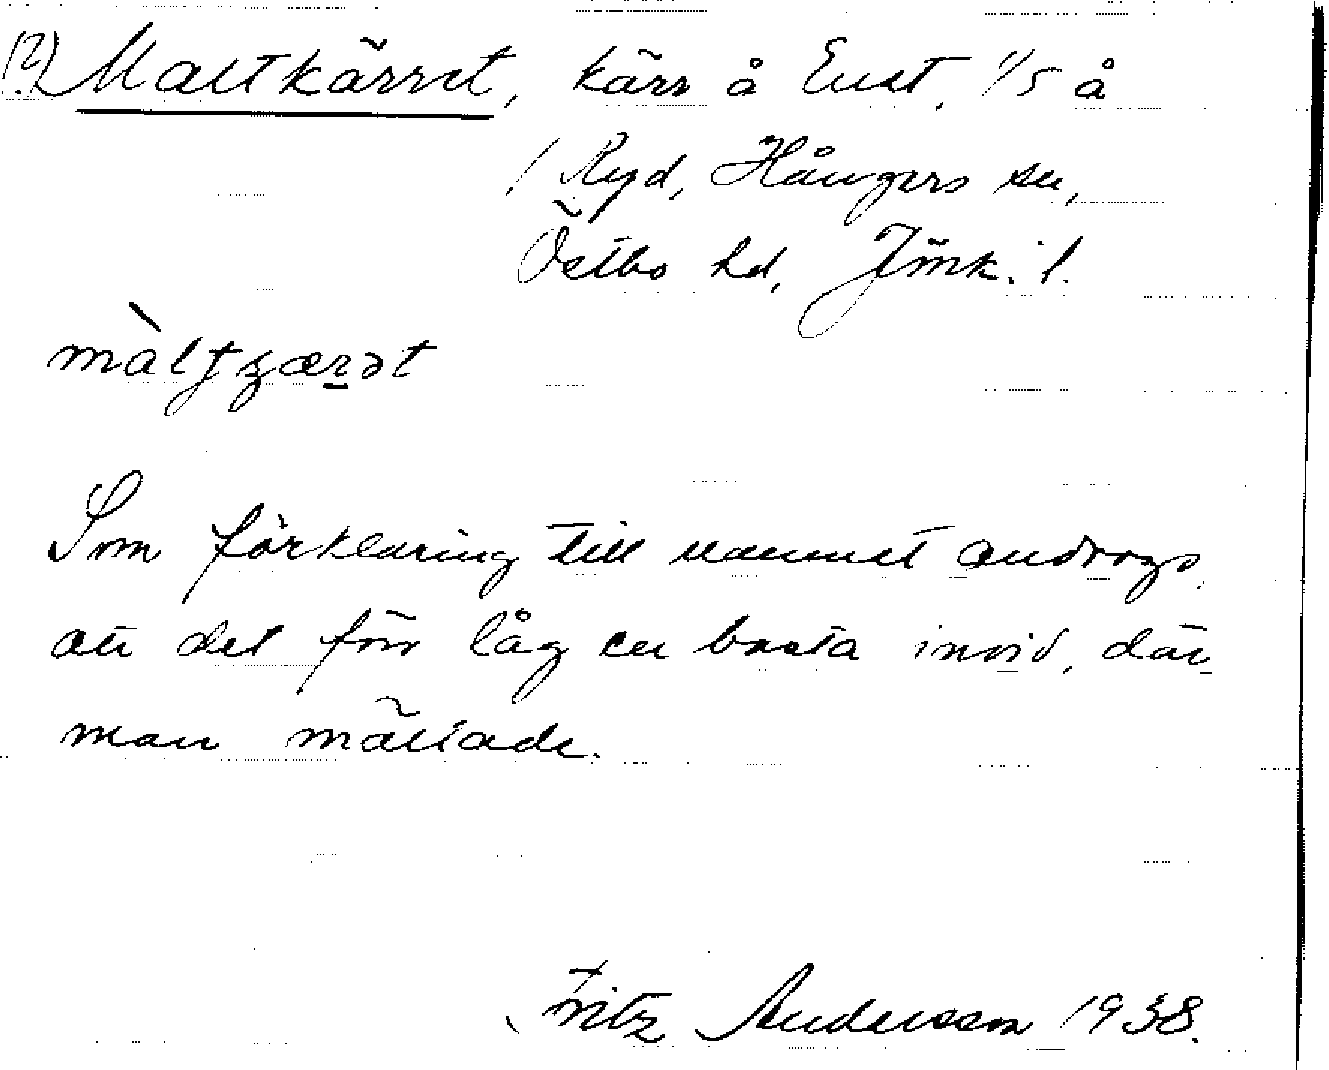 (?) Maltkärret, kärr å Enst. 1/5 å
1 Ryd, Hångers sn,
Östbo hd, Jönk. l.
màltȥærət
Som förklaring till namnet androgs,
att det förr låg en basta invid, där
man mältade.
Fritz Andersson 1938.